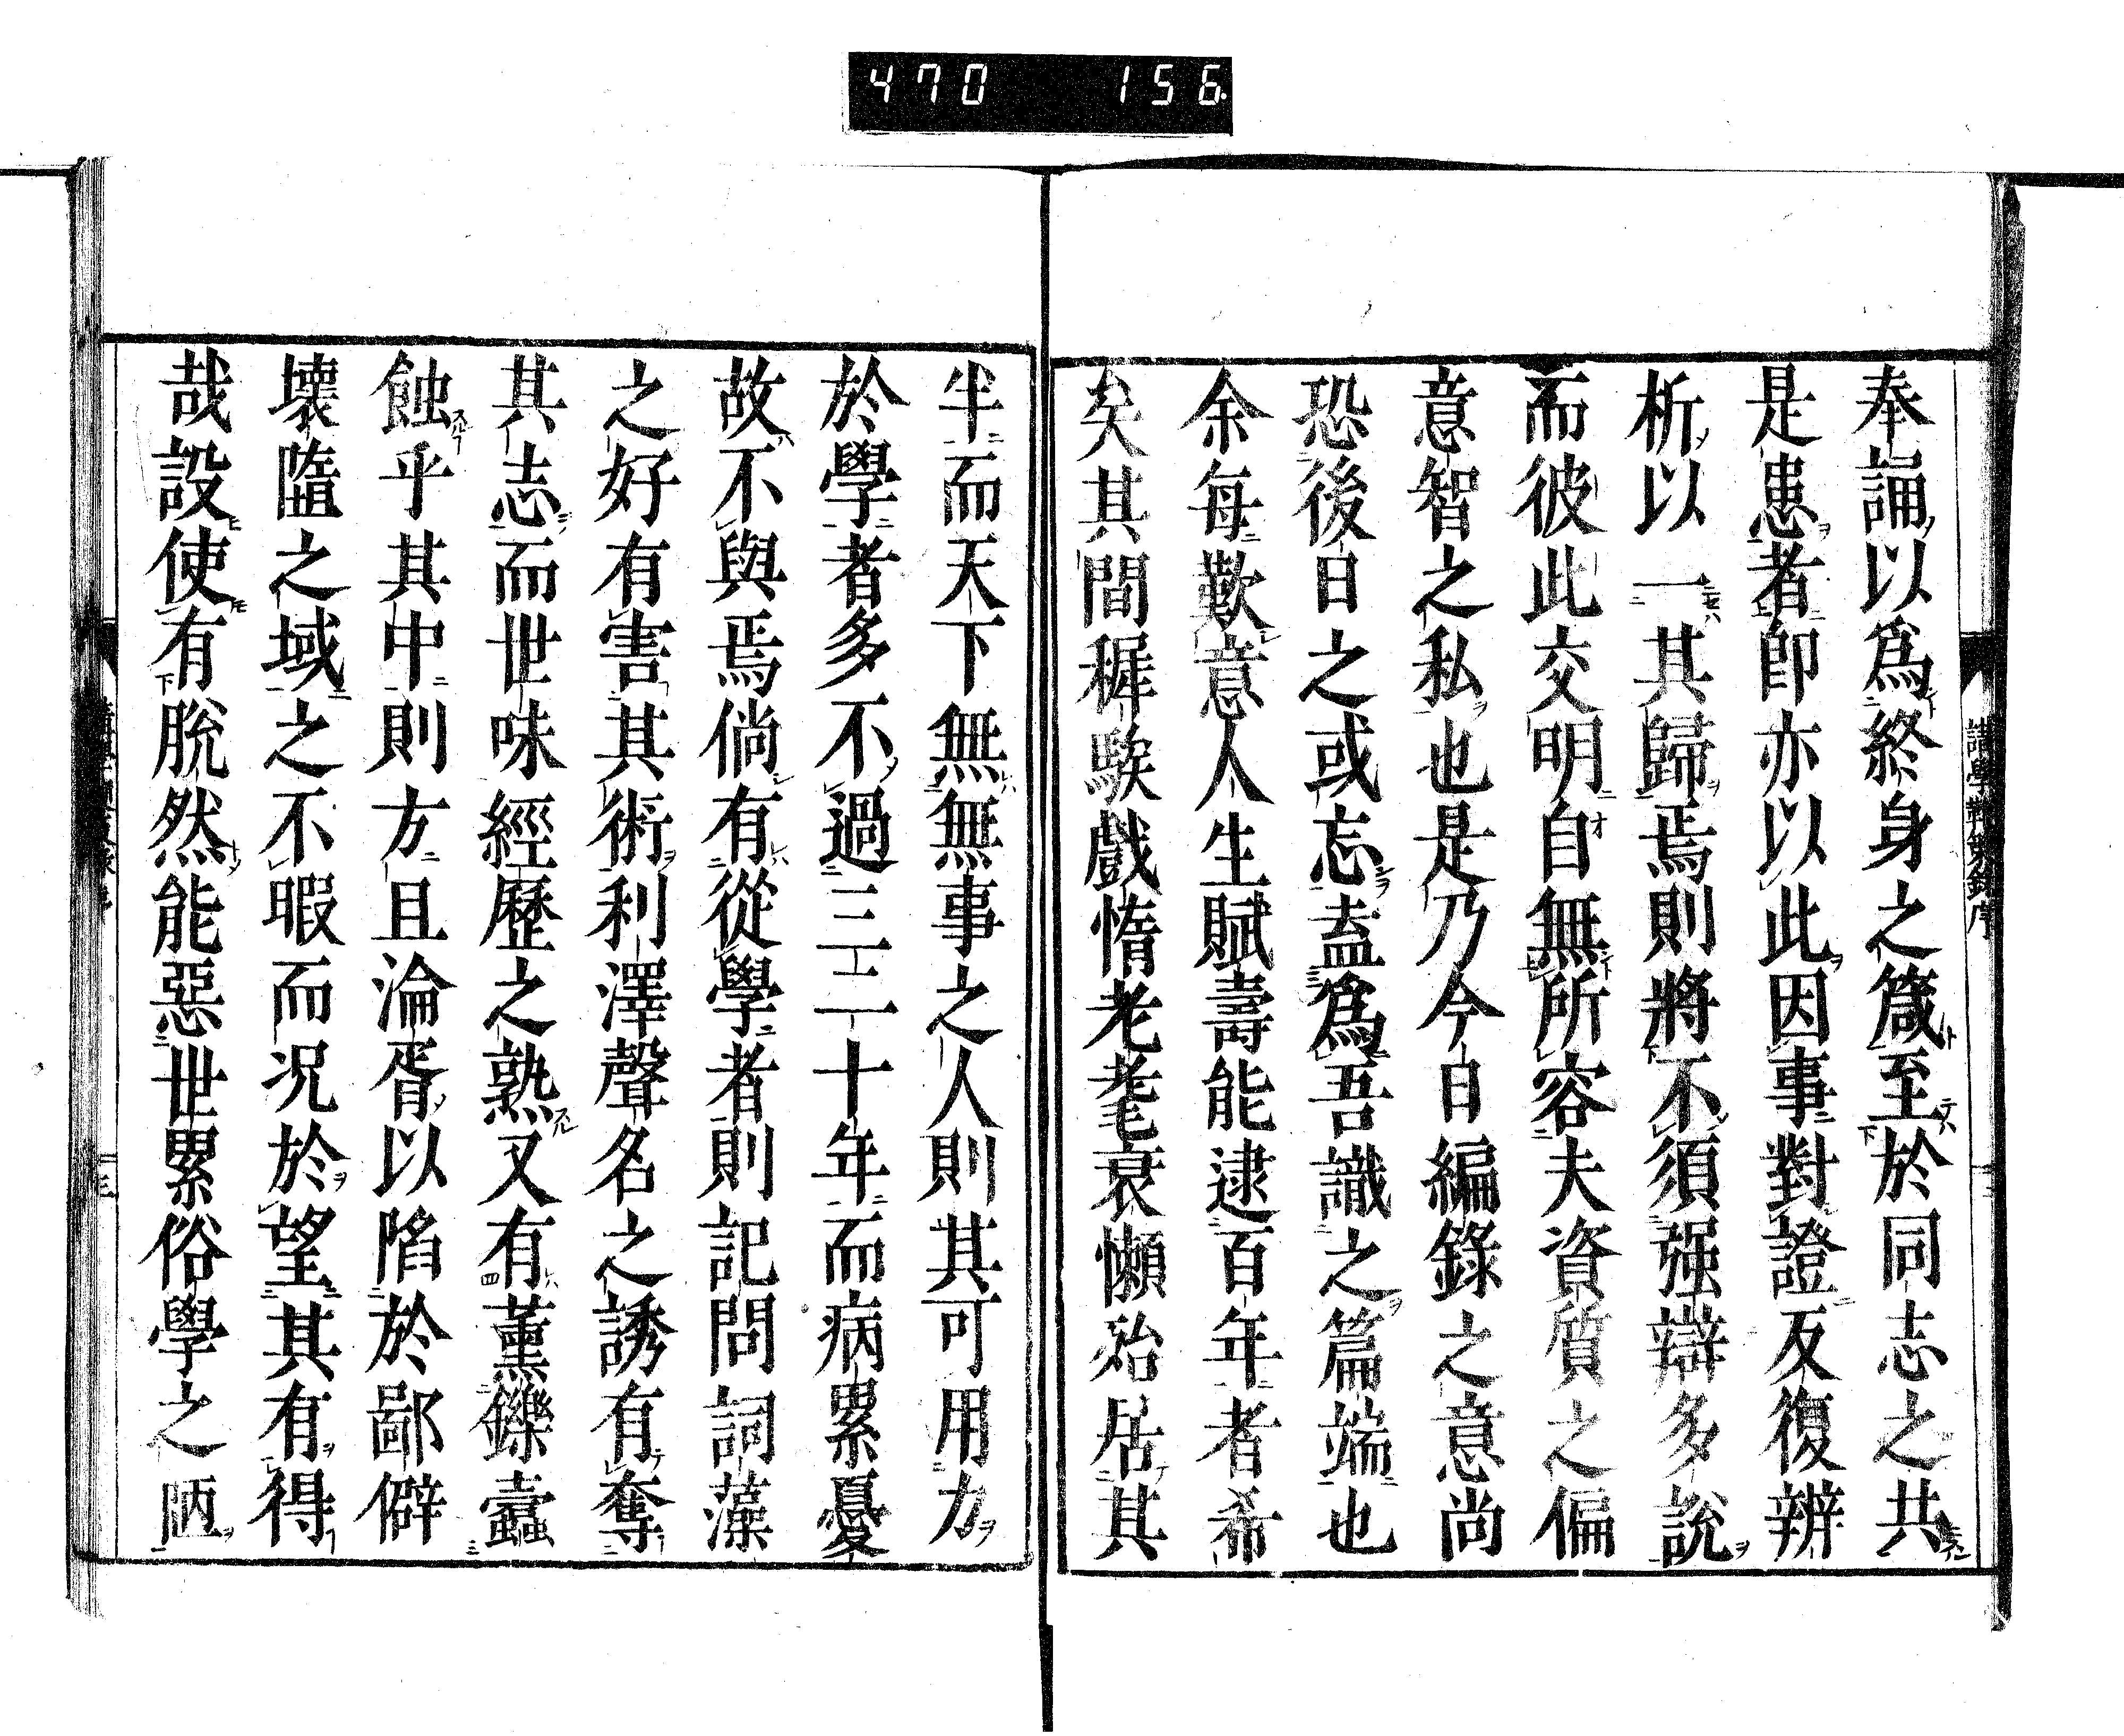 470 156
奉誦以爲終身之箴至於同志之共
是患者卽亦以此因事對證反復辨
析以一其歸焉則將不須强辯多說
而彼此交明自無所容夫資質之偏
意智之私也是乃今日編錄之意尚
恐後日之或忘盍爲吾識之篇端也
余每歎意人生賦壽能逮百年者希
矣其間穉騃戲惰老耄衰懶殆居其
半而天下無無事之人則其可用力
於學者多不過三二十年而病累憂
故不與焉倘有從學者則記問詞藻
之好有害其術利澤聲名之誘有奪
其志而世味經歷之熟又有薰鑠蠹
蝕乎其中則方且淪胥以陷於鄙僻
壞隳之域之不暇而況於望其有得
哉設使有脫然能惡世累俗學之陋